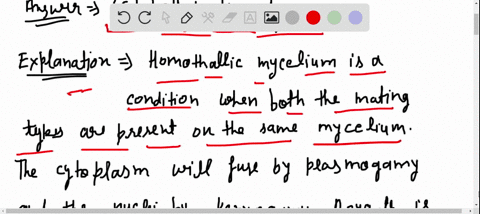 Answer ⇒
Explanation ⇒ Homothallic mycelium is a
condition when both the mating
types are present on the same mycelium.
The cytoplasm will fuse by plasmogamy
and the nuclei by